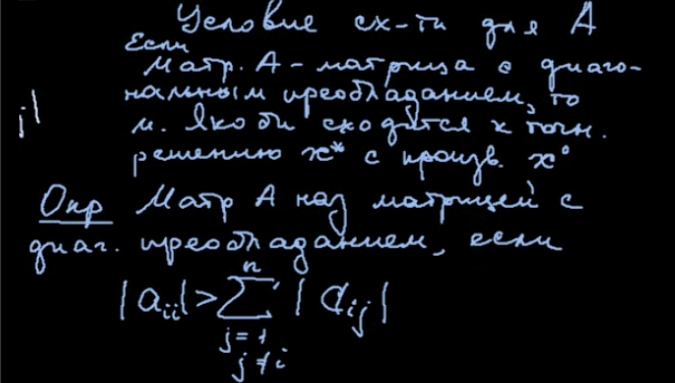 Условие сх-ти для А
Если
Матр. А - матрица с диаго-
нальным преобладанием, то
м. Якоби сходится к точн.
решению x* с произв. x⁰
Опр Матр А наз матрицей с
диаг. преобладанием, если
|aᵢᵢ| > Σ |aᵢⱼ|
n
j = 1
j ≠ i